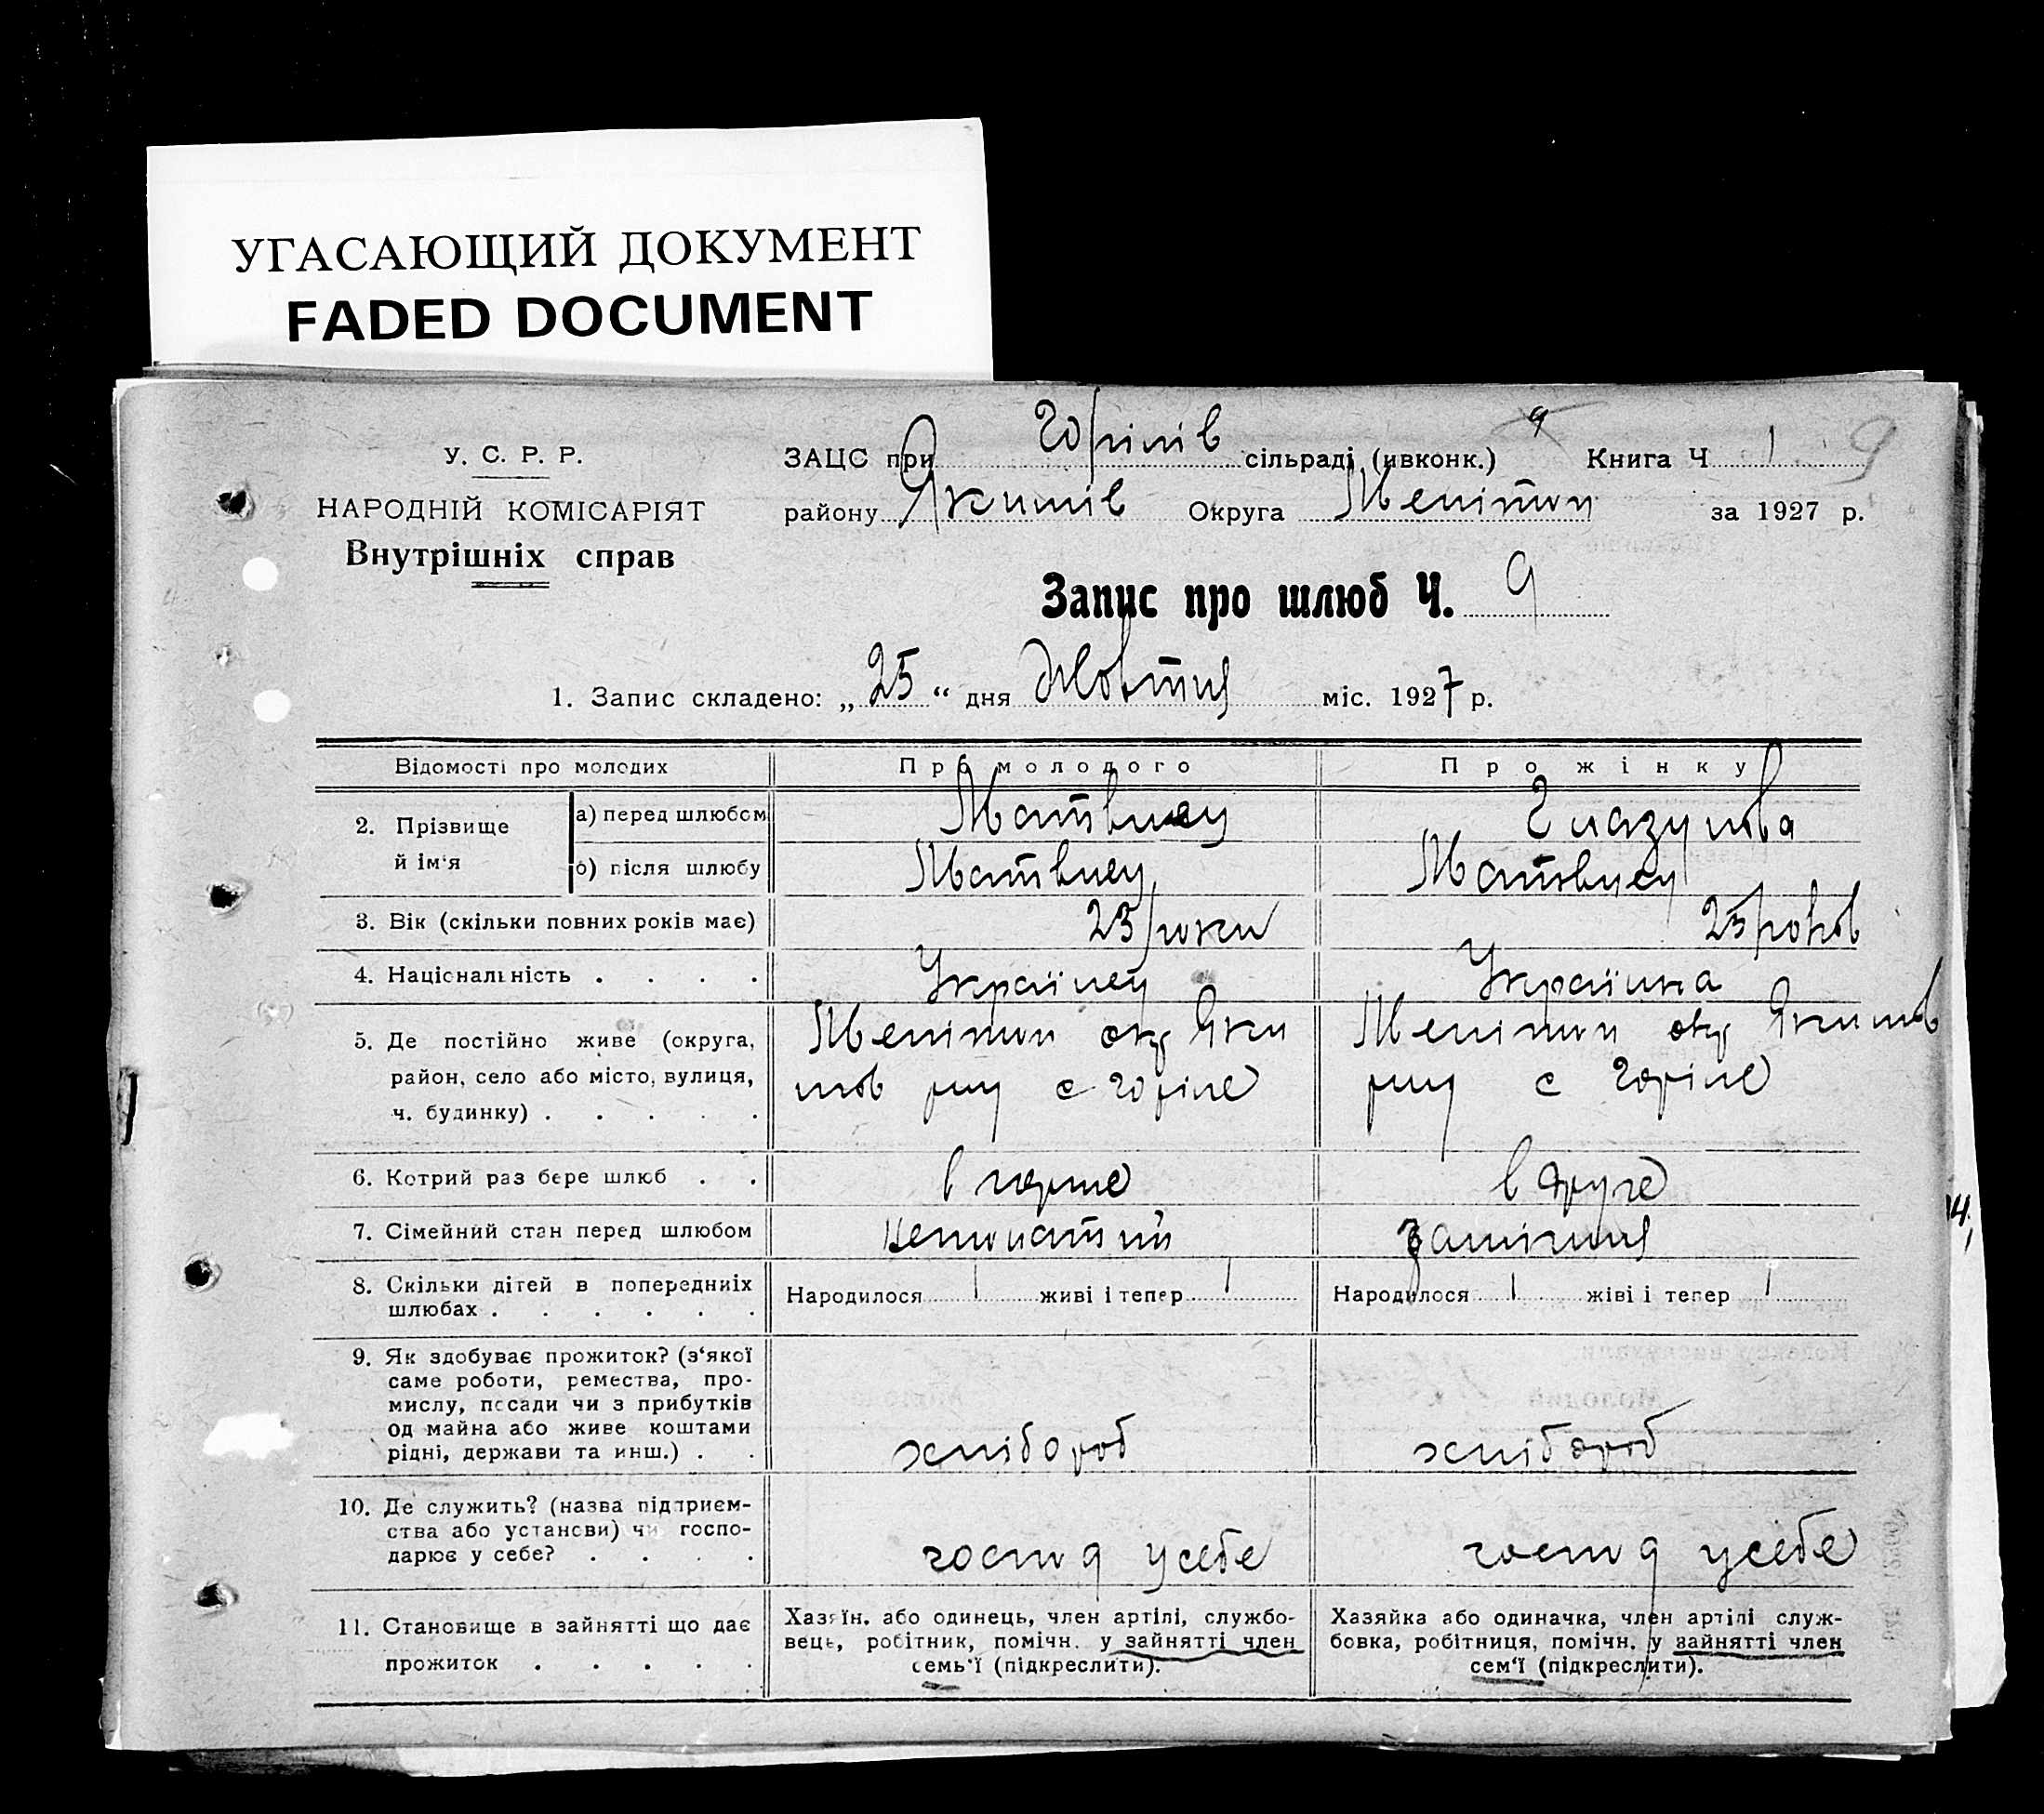 УГАСАЮЩИЙ ДОКУМЕНТ
FADED DOCUMENT
У. С. Р. Р.
НАРОДНІЙ КОМІСАРІЯТ
Внутрішніх справ
ЗАЦС при Горілів сільраді (ивконк.) Книга Ч 1 9
району Якимів Округа Мелітоп за 1927 р.
Запис про шлюб Ч. 9
1. Запис складено: „25“ дня Жовтня міс. 1927 р.
Відомості про молодих Про молодого Про жінку
2. Прізвище й ім‘я
а) перед шлюбом Глазунова
б) після шлюбу
3. Вік (скільки повних років має) 23 роки 25 років
4. Національність . . . . Українец Українка
5. Де постійно живе (округа, Мелітоп окр Яки Мелітоп окр Якимов
район, село або місто, вулиця, мов рну с Горіле рну с Горіле
ч. будинку) . . . . .
6. Котрий раз бере шлюб . . в перше в друге
7. Сімейний стан перед шлюбом нежонатий заміжня
8. Скільки дітей в попередніх Народилося живі і тепер Народилося живі і тепер
шлюбах . . . . . .
9. Як здобуває прожиток? (з‘якої
саме роботи, ремества, про-
мислу, посади чи з прибутків
од майна або живе коштами
рідні, держави та инш.) . . хлібороб хлібороб
10. Де служить? (назва підприєм-
ства або установи) чи госпо-
дарює у себе? . . . . господ усебе господ усебе
11. Становище в зайнятті що дає
прожиток . . . . .
Хазяїн. або одинець, член артілі, службо-
вець, робітник, помічн. у зайнятті член
семь‘ї (підкреслити).
Хазяйка або одиначка, член артілі служ-
бовка, робітниця, помічн. у зайнятті член
сем‘ї (підкреслити).